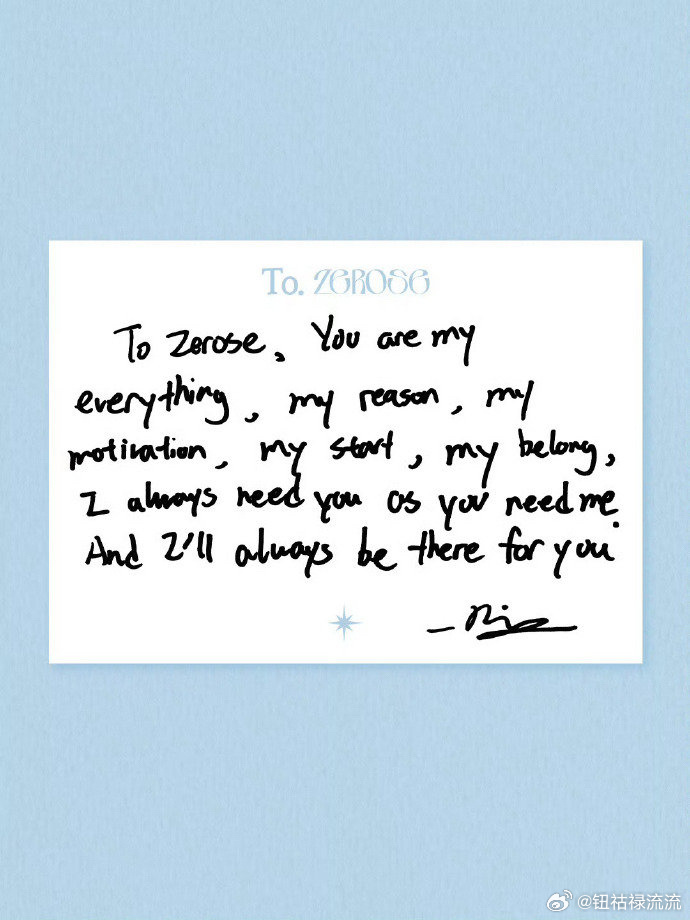 To. ZEROSE
To Zerose, You are my
everything, my reason, my
motivation, my start, my belong,
I always need you as you need me.
And I'll always be there for you
@钮祜禄流流